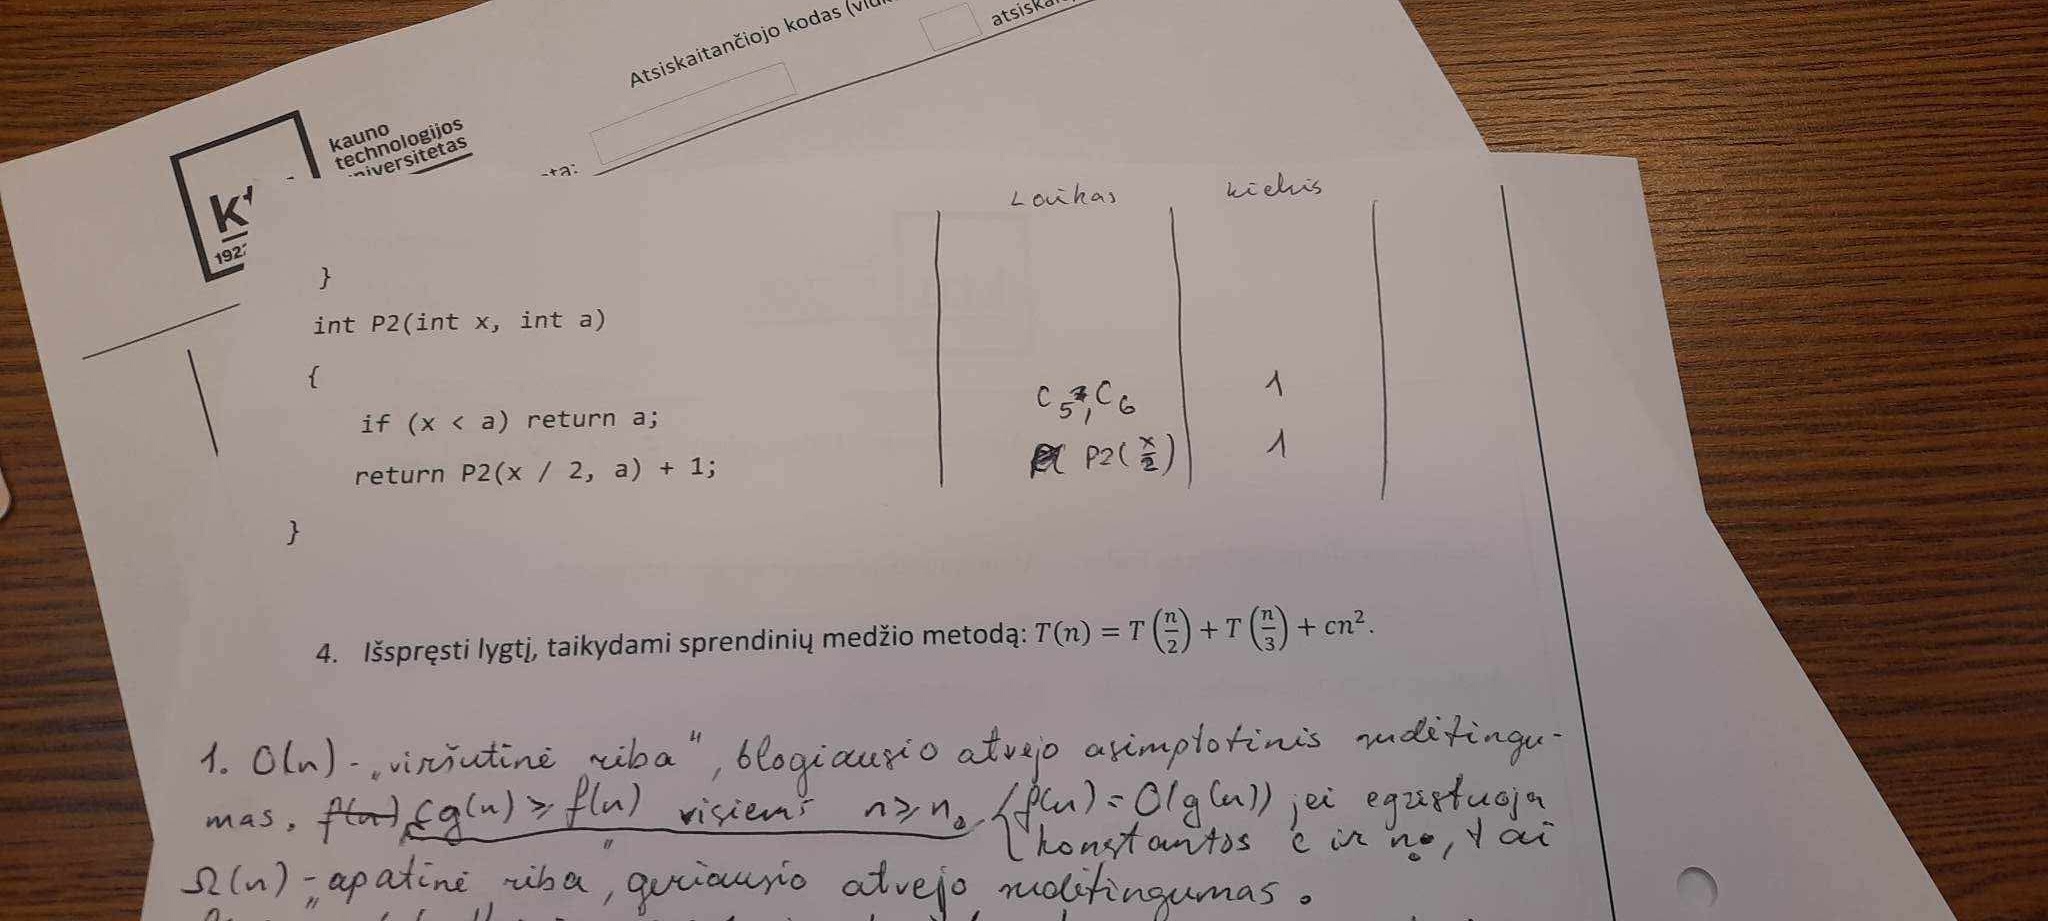 Atsiskaitančiojo kodas
kauno
technologijos
universitetas
1922
Laikas kiekis
}
int P2(int x, int a)
{
if (x < a) return a; C5,C6 1
return P2(x / 2, a) + 1; P2(x/2) 1
}
4. Išspręsti lygtį, taikydami sprendinių medžio metodą: T(n) = T(n/2) + T(n/3) + cn².
1. O(n) - „viršutinė riba", blogiausio atvejo asimptotinis sudėtingu-
mas. f(n) cg(n) ≥ f(n) visiems n ≥ n₀ (f(n) = O(g(n)) jei egzistuoja
konstantos c ir n₀, tai
Ω(n) - „apatinė riba", geriausio atvejo sudėtingumas.